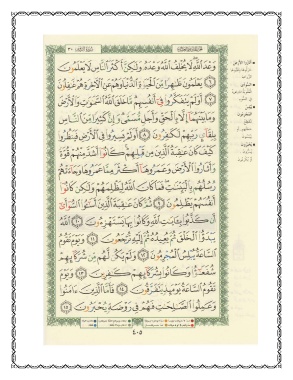 وَعْدَ اللَّهِ لَا يُخْلِفُ اللَّهُ وَعْدَهُ وَلَٰكِنَّ أَكْثَرَ النَّاسِ لَا يَعْلَمُونَ
٦ يَعْلَمُونَ ظَاهِرًا مِّنَ الْحَيَاةِ الدُّنْيَا وَهُمْ عَنِ الْآخِرَةِ هُمْ غَافِلُونَ
٧ أَوَلَمْ يَتَفَكَّرُوا فِي أَنفُسِهِم مَّا خَلَقَ اللَّهُ السَّمَاوَاتِ وَالْأَرْضَ
وَمَا بَيْنَهُمَا إِلَّا بِالْحَقِّ وَأَجَلٍ مُّسَمًّى وَإِنَّ كَثِيرًا مِّنَ النَّاسِ
بِلِقَاءِ رَبِّهِمْ لَكَافِرُونَ ٨ أَوَلَمْ يَسِيرُوا فِي الْأَرْضِ فَيَنظُرُوا
كَيْفَ كَانَ عَاقِبَةُ الَّذِينَ مِن قَبْلِهِمْ كَانُوا أَشَدَّ مِنْهُمْ قُوَّةً
وَأَثَارُوا الْأَرْضَ وَعَمَرُوهَا أَكْثَرَ مِمَّا عَمَرُوهَا وَجَاءَتْهُمْ
رُسُلُهُم بِالْبَيِّنَاتِ فَمَا كَانَ اللَّهُ لِيَظْلِمَهُمْ وَلَٰكِن كَانُوا
أَنفُسَهُمْ يَظْلِمُونَ ٩ ثُمَّ كَانَ عَاقِبَةَ الَّذِينَ أَسَاءُوا السُّوأَىٰ
أَن كَذَّبُوا بِآيَاتِ اللَّهِ وَكَانُوا بِهَا يَسْتَهْزِئُونَ ١٠ اللَّهُ
يَبْدَأُ الْخَلْقَ ثُمَّ يُعِيدُهُ ثُمَّ إِلَيْهِ تُرْجَعُونَ ١١ وَيَوْمَ تَقُومُ
السَّاعَةُ يُبْلِسُ الْمُجْرِمُونَ ١٢ وَلَمْ يَكُن لَّهُم مِّن شُرَكَائِهِمْ
شُفَعَاءُ وَكَانُوا بِشُرَكَائِهِمْ كَافِرِينَ ١٣ وَيَوْمَ
تَقُومُ السَّاعَةُ يَوْمَئِذٍ يَتَفَرَّقُونَ ١٤ فَأَمَّا الَّذِينَ آمَنُوا
وَعَمِلُوا الصَّالِحَاتِ فَهُمْ فِي رَوْضَةٍ يُحْبَرُونَ ١٥
٤٠٥